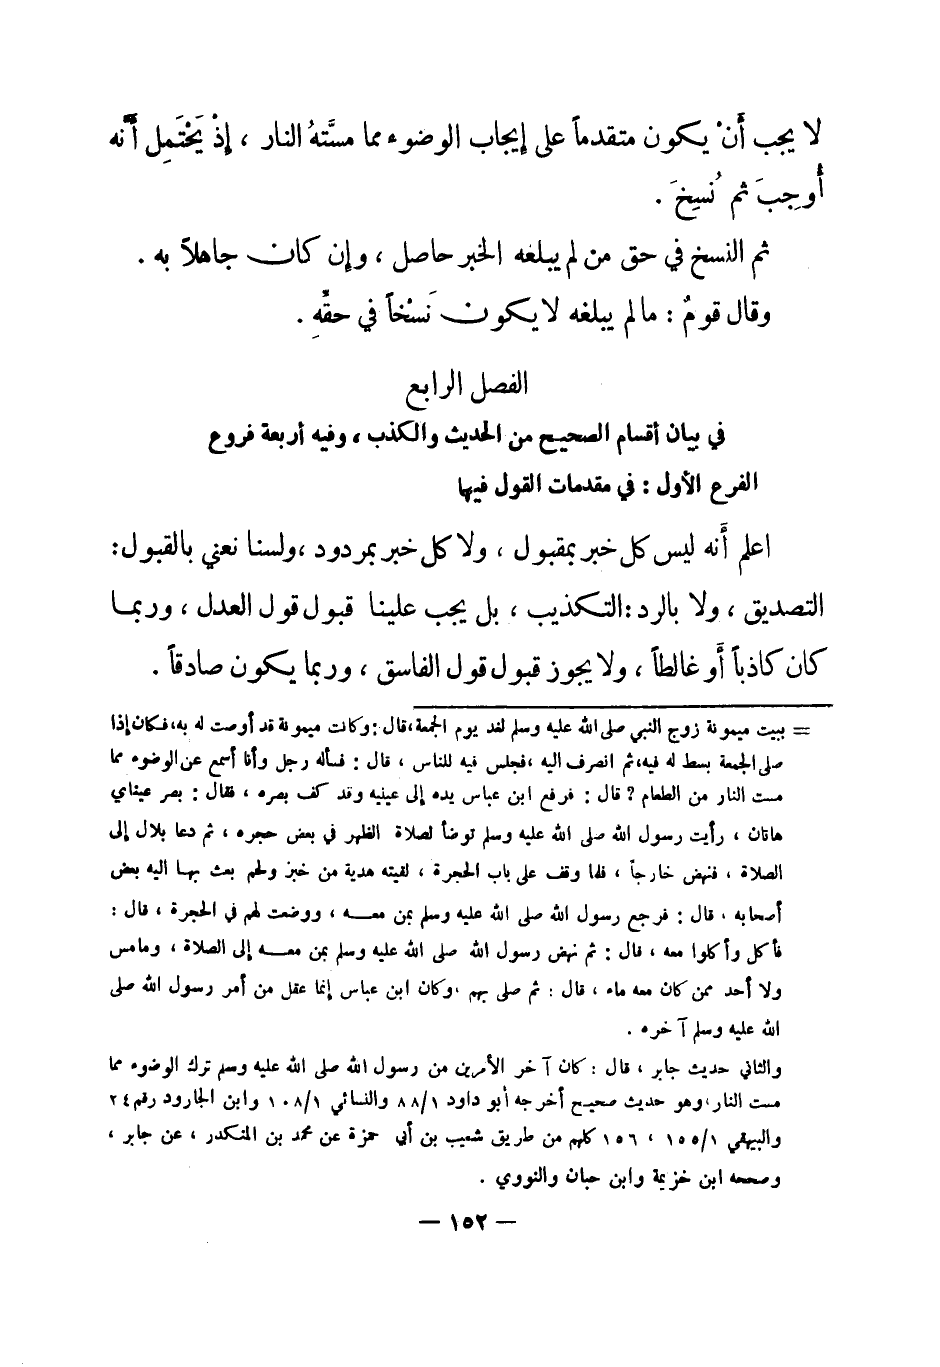 لا يجب أَنْ يكون متقدماً على إيجاب الوضوء مما مسَّتهُ النار ، إذْ يَحْتَمِل أَنه
أُوجِبَ ثم نُسِخَ .
ثم النسخ في حق من لم يبلغه الخبر حاصل ، وإن كان جاهلاً به .
وقال قومٌ : مالم يبلغه لا يكون نَسْخاً في حقِّهِ .
الفصل الرابع
في بيان أقسام الصحيح من الحديث والكذب ، وفيه أربعة فروع
الفرع الأول : في مقدمات القول فيها
اعلم أَنه ليس كل خبر بمقبول ، ولا كل خبر بمردود ،ولسنا نعني بالقبول:
التصديق ، ولا بالرد :التكذيب ، بل يجب علينا قبول قول العدل ، وربما
كان كاذباً أَو غالطاً ، ولا يجوز قبول قول الفاسق ، وربما يكون صادقاً .
= ببيت ميمونة زوج النبي صلى الله عليه وسلم لغد يوم الجمعة،قال :وكانت ميمونة قد أوصت له به،فكان إذا
صلى الجمعة بسط له فيه،ثم انصرف اليه ،فجلس فيه للناس ، قال : فسأله رجل وأنا أسمع عن الوضوء مما
مست النار من الطعام ? قال : فرفع ابن عباس يده إلى عينيه وقد كف بصره ، فقال : بصر عيناي
هاتان ، رأيت رسول الله صلى الله عليه وسلم توضأ لصلاة الظهر في بعض حجره ، ثم دعا بلال إلى
الصلاة ، فنهض خارجاً ، فلما وقف على باب الحجرة ، لقيته هدية من خبز ولحم بعث بها اليه بعض
أصحابه ، قال : فرجع رسول الله صلى الله عليه وسلم بمن معه ، ووضعت لهم في الحجرة ، قال :
فأكل وأكلوا معه ، قال : ثم نهض رسول الله صلى الله عليه وسلم بمن معه إلى الصلاة ، ومامس
ولا أحد ممن كان معه ماء ، قال : ثم صلى بهم ،وكان ابن عباس إنما عقل من أمر رسول الله صلى
الله عليه وسلم آخره .
والثاني حديث جابر ، قال : كان آخر الأمرين من رسول الله صلى الله عليه وسلم ترك الوضوء مما
مست النار،وهو حديث صحيح أخرجه أبو داود ١/‏٨٨ والنسائي ١/‏١٠٨ وابن الجارود رقم ٢٤
والبيهقي ١/‏١٥٥ ، ١٥٦ كلهم من طريق شعيب بن أبي حمزة عن محمد بن المنكدر ، عن جابر ،
وصححه ابن خزيمة وابن حبان والنووي .
— ١٥٢ —